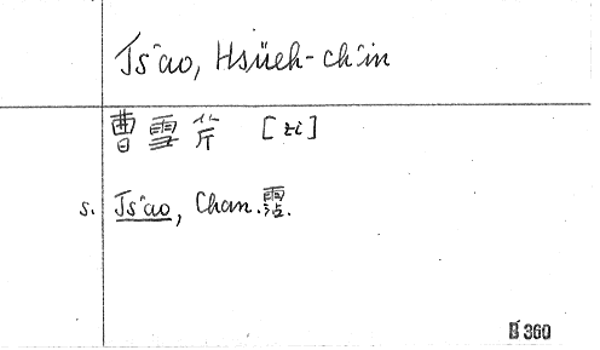 Ts'ao, Hsüeh-ch'in
曹雪芹 [zi]
s. Ts'ao, Chan. 霑.
B 360